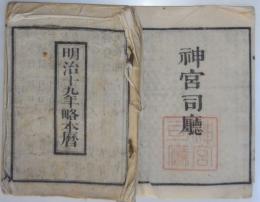 明治十九年略本暦
神宮司廳